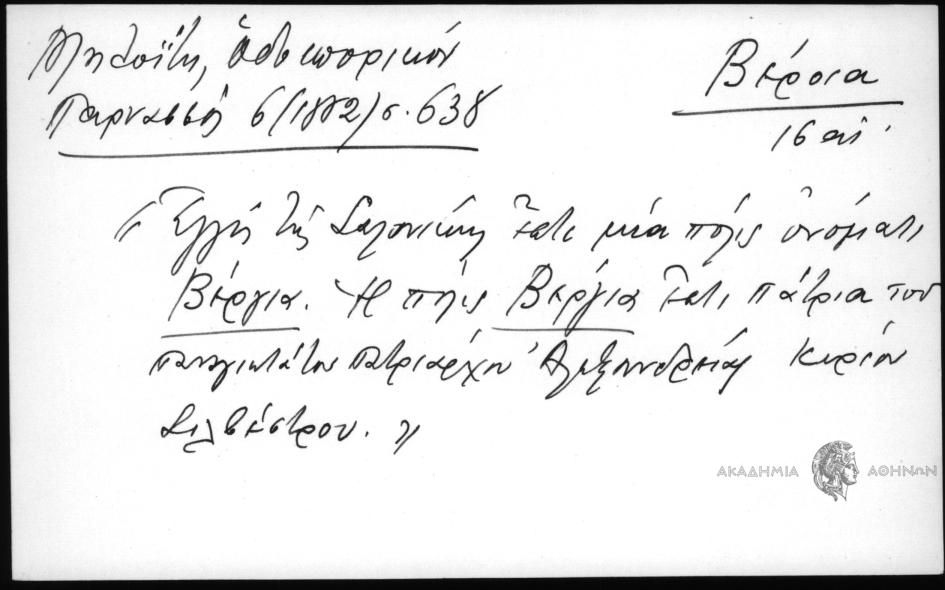 Μηλοΐτη, Ὁδοιπορικόν
Παρνασσός 6(1882)σ. 638
Βέροια
16 αἰ.
"Ἐγγύς τῆς Σαλονίκης ἔστι μία πόλις ὀνόματι
Βέργια. Ἡ πόλις Βέργια ἔστι πάτρια του
παναγιωτάτου πατριάρχου Ἀλεξανδρείας κυρίου
Σιλβέστρου."
ΑΚΑΔΗΜΙΑ ΑΘΗΝΩΝ